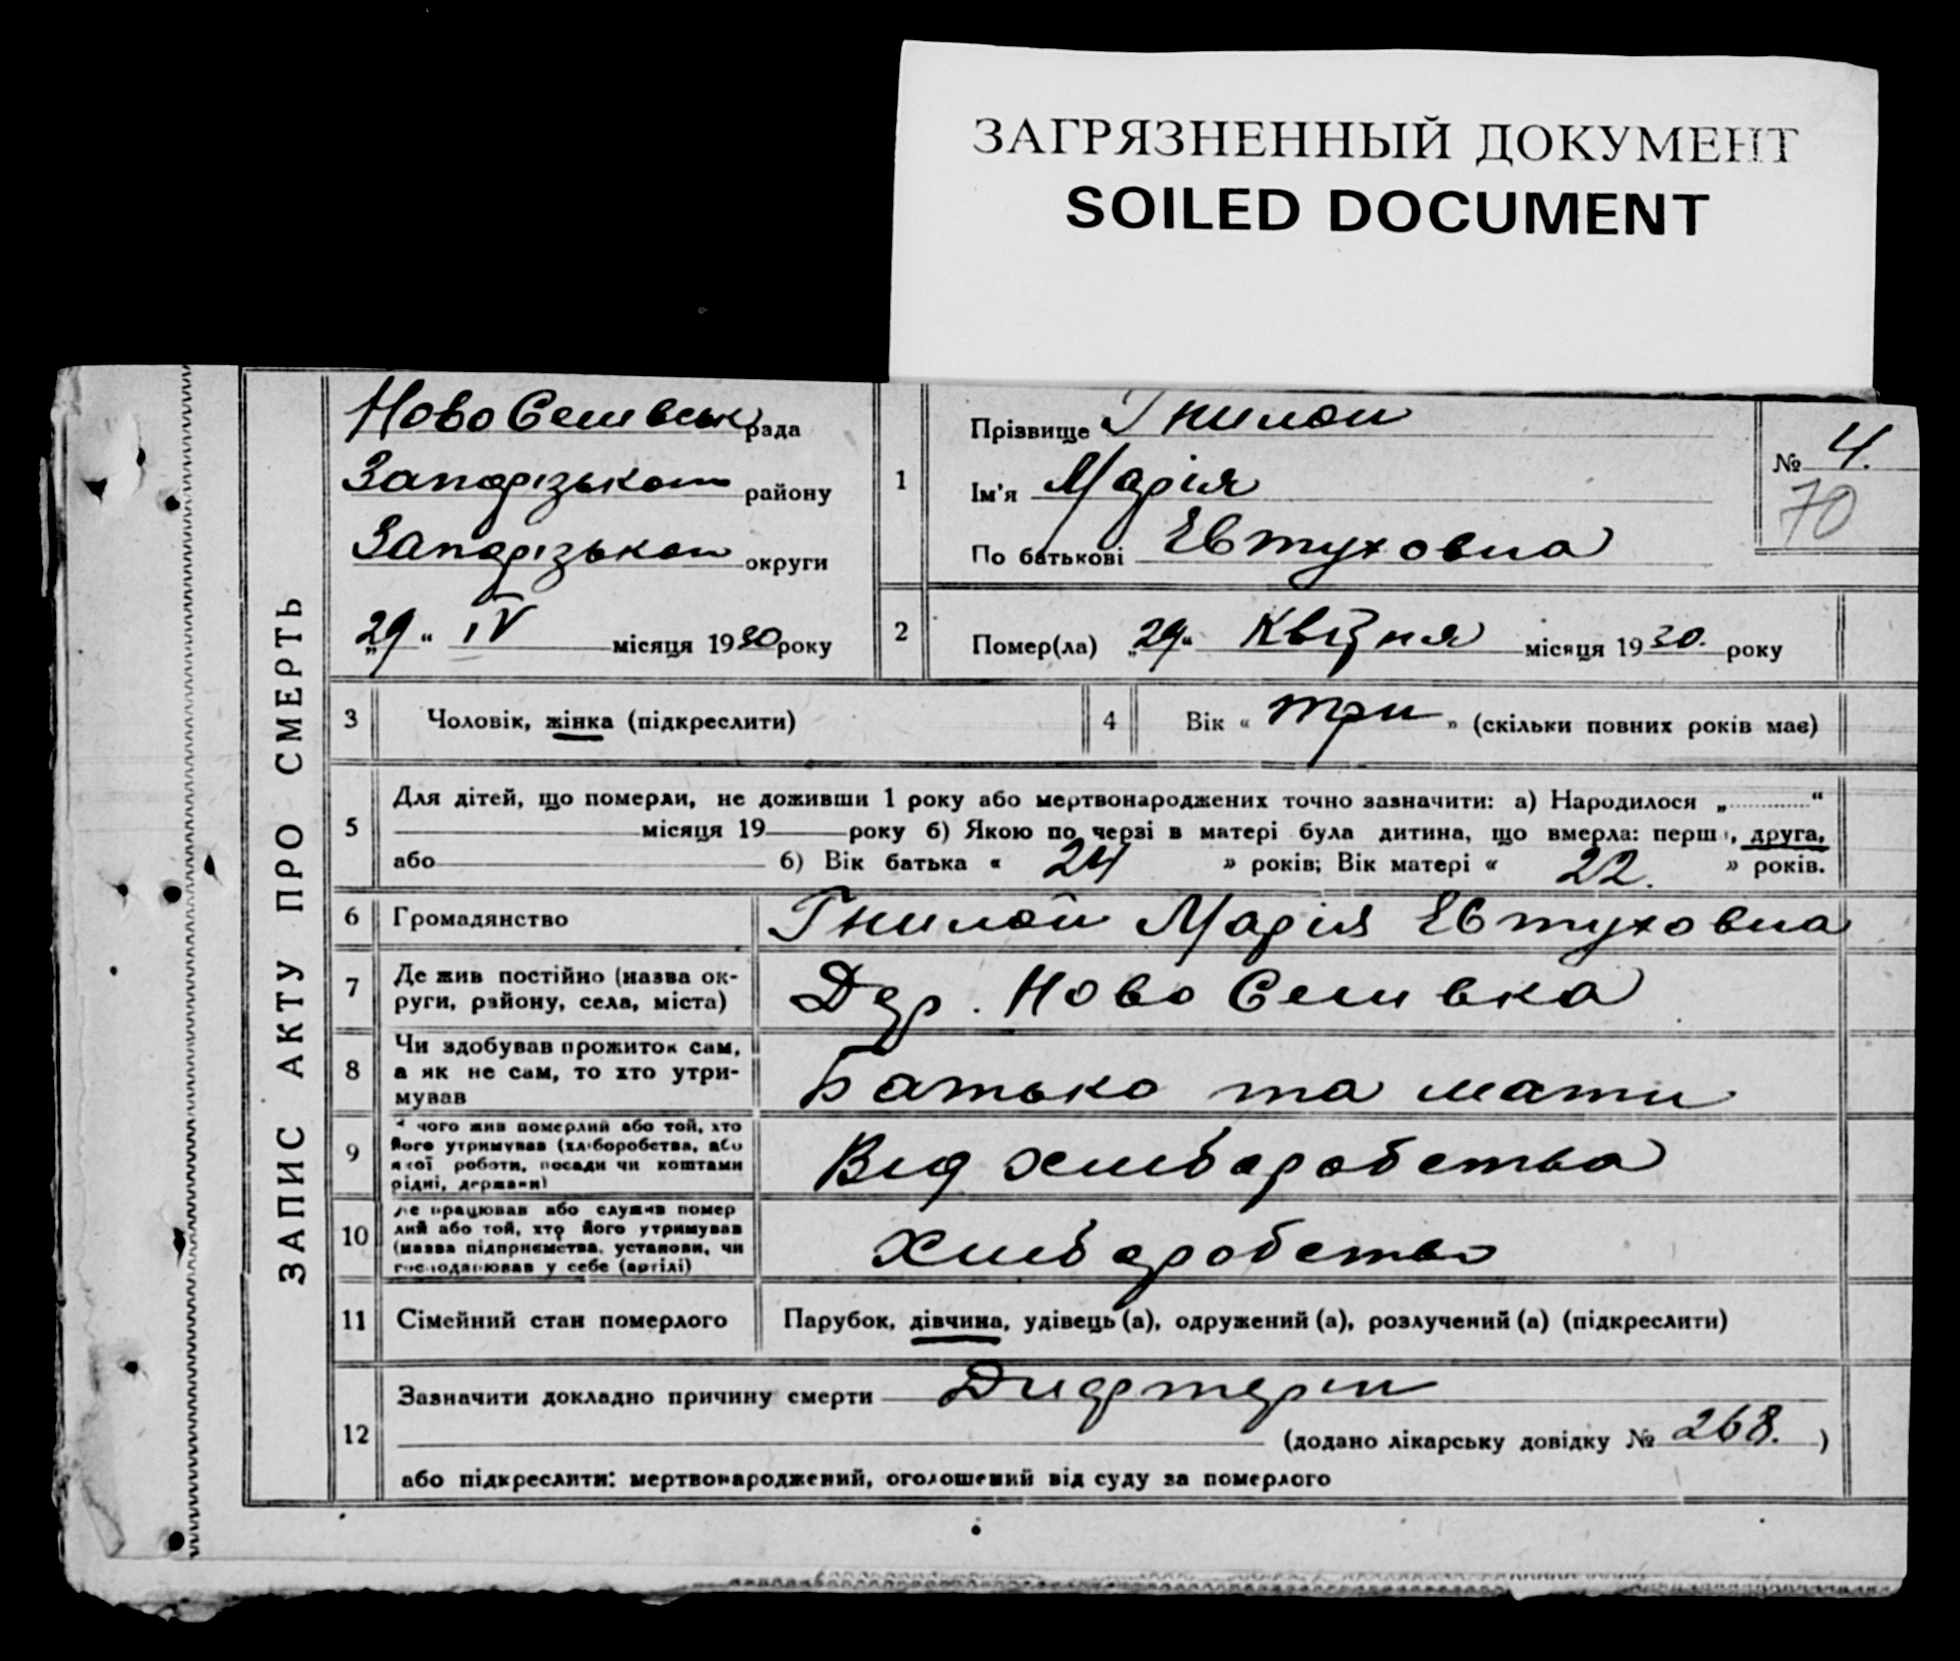 ЗАГРЯЗНЕННЫЙ ДОКУМЕНТ
SOILED DOCUMENT
ЗАПИС АКТУ ПРО СМЕРТЬ
Ново Селивськ рада
Запорізькои району
Запорізькои округи
„29“ IV місяця 1930 року
1
Прізвище Гнилой
Ім'я Марія
По батькові Евтуховна
№ 4.
70
2 Помер(ла) „29“ Квізня місяця 1930. року
3 Чоловік, жінка (підкреслити)
4 Вік « три » (скільки повних років має)
5 Для дітей, що померли, не доживши 1 року або мертвонароджених точно зазначити: а) Народилося „ “
місяця 19 року б) Якою по черзі в матері була дитина, що вмерла: перш, друга,
або б) Вік батька « 24 » років; Вік матері « 22. » років.
6 Громадянство Гнилой Марія Евтуховна
7 Де жив постійно (назва ок-
руги, району, села, міста)
Дер. Ново Селивка
8 Чи здобував прожиток сам,
а як не сам, то хто утри-
мував
Батько та мати
9 чого жив померлий або той, хто
його утримував (хліборобства, або
якої роботи, посади чи коштами
рідні, держави)
Вид хлиборобства
10 Де працював або служив помер
лий або той, хто його утримував
(назва підприємства, установи, чи
господарював у себе (артілі)
Хлиборобство
11 Сімейний стан померлого Парубок, дівчина, удівець(а), одружений(а), розлучений(а) (підкреслити)
12 Зазначити докладно причину смерти Дифтерии
(додано лікарську довідку № 268. )
або підкреслити: мертвонароджений, оголошений від суду за померлого